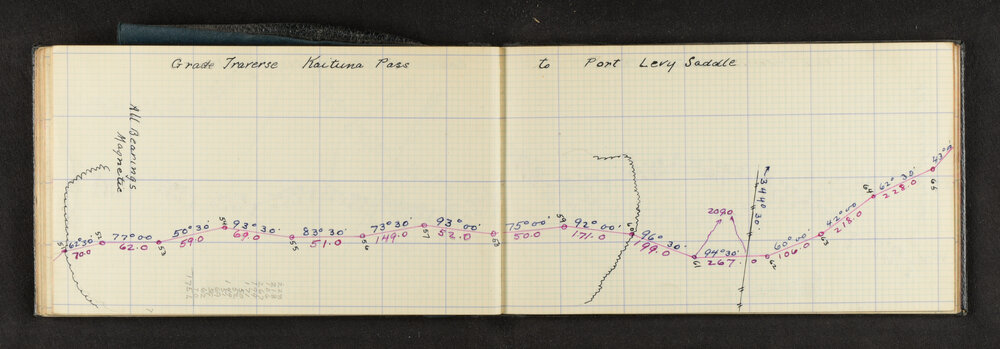 Grade Traverse Kaituna Pass to Port Levy Saddle
All Bearings
Magnetic
51
62° 30'
70.0
52
77° 00'
62.0
53
50° 30'
59.0
54
93° 30'
69.0
55
83° 30'
51.0
56
73° 30'
149.0
57
93° 00'
52.0
58
75° 00'
50.0
59
92° 00'
171.0
60
96° 30'
199.0
61
209.0
94° 30'
267.0
344° 30'
62
60° 00'
106.0
63
42° 00'
218.0
64
62° 30'
228.0
65
53° 0